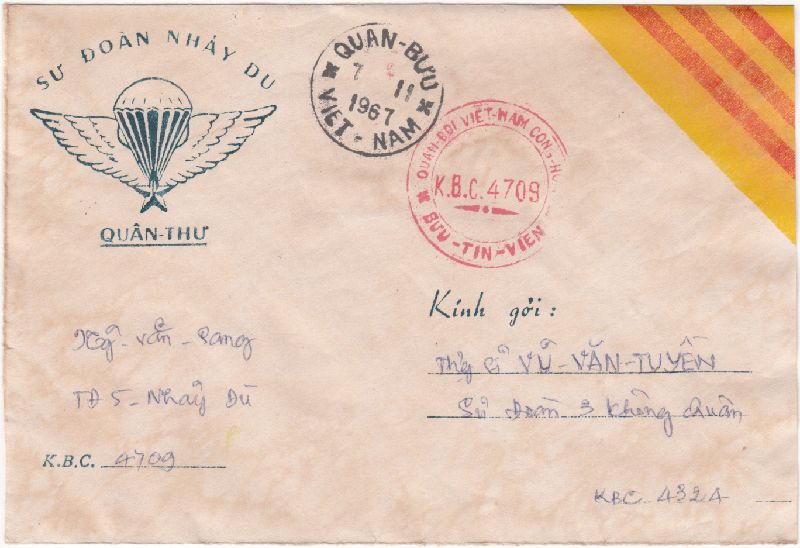 SƯ ĐOÀN NHẢY DÙ
QUÂN-THƯ
QUAN-BƯU
7 11
1967
VIỆT-NAM
QUÂN-ĐỘI VIỆT-NAM CỘNG-HÒ
K.B.C. 4709
BƯU-TÍN-VIÊN
Ngô-Văn-Sang
TĐ 5-Nhảy Dù
K.B.C. 4709
Kính gởi :
VŨ-VĂN-TUYỀN
Sư Đoàn 3 Không Quân
KBC 4324